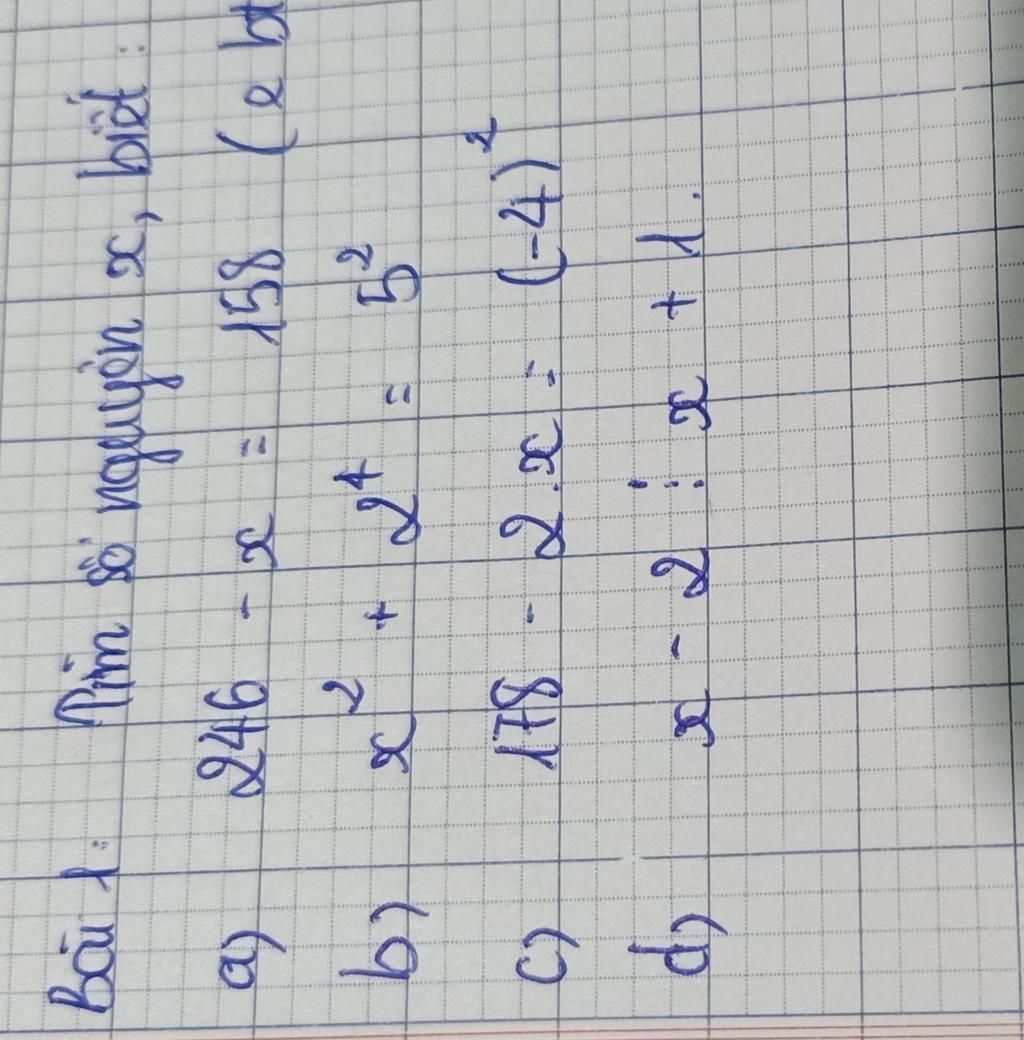 Bài 1: Tìm số nguyên x, biết:
a) 246 - x = 158 (2 bt
b) x² + 2⁴ = 5²
c) 178 - 2.x = (-4)²
d) x - 2 ⋮ x + 1.